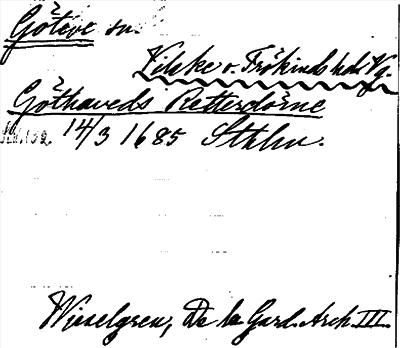 Göteve sn.
Vilske o. Frökinds hdr Vg.
Göthaveds Retterdörne
14/3 1685 Sthlm.
Wieselgren, De la Gard. Arch. III.